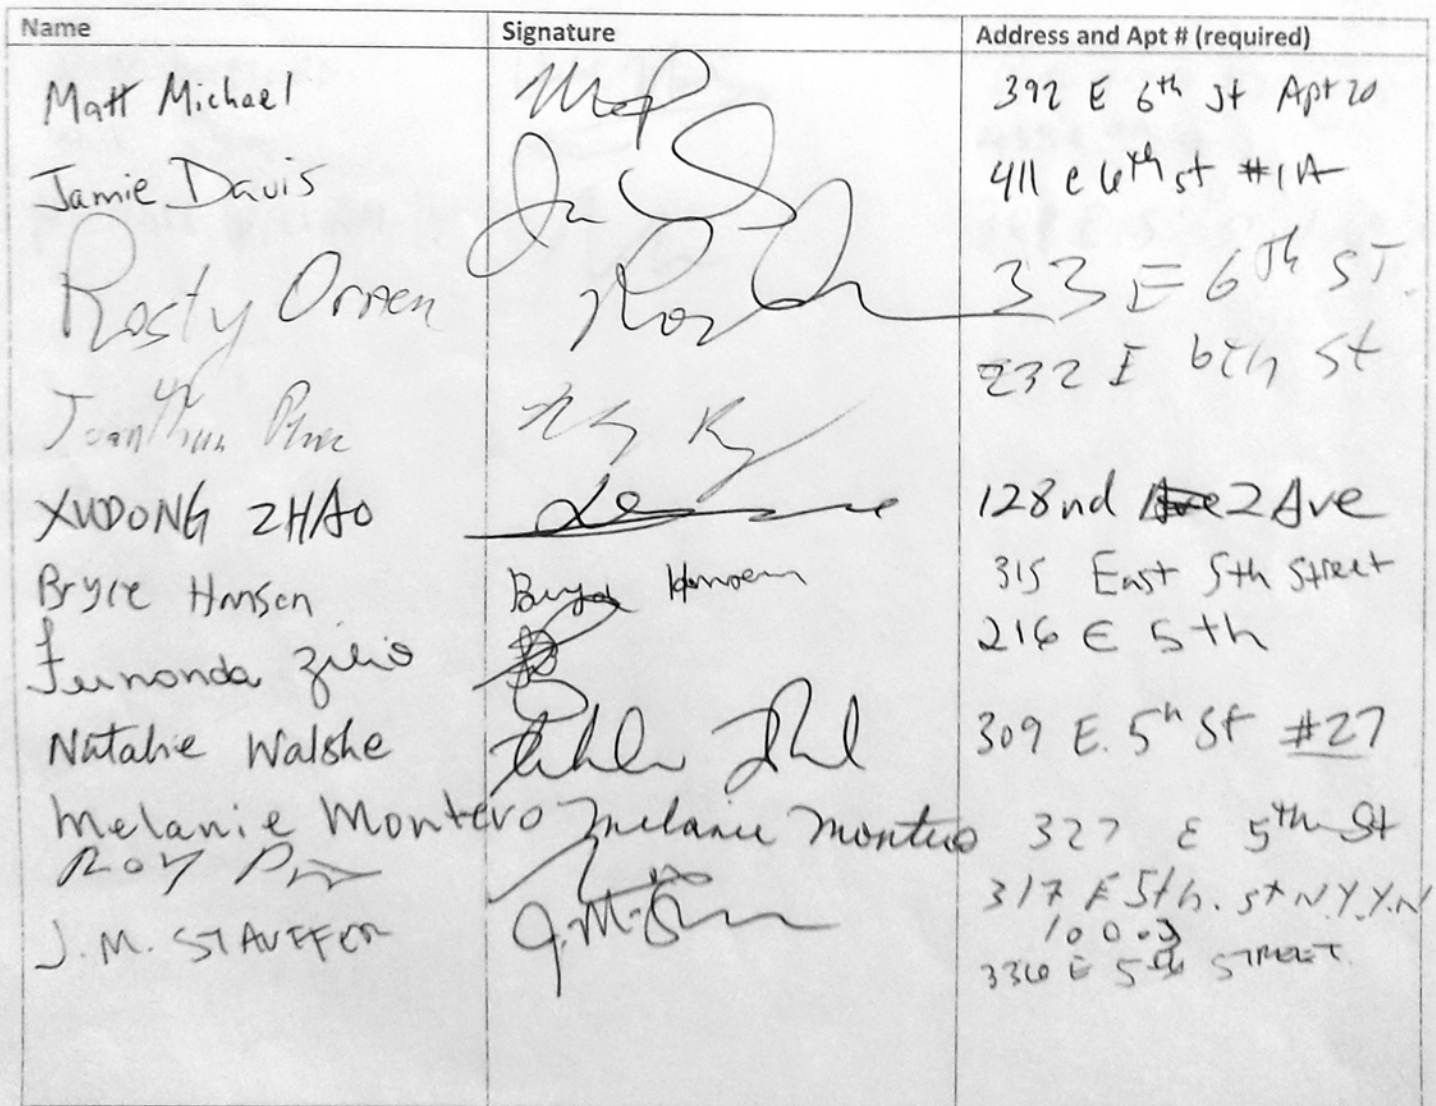 Name Signature Address and Apt # (required)
Matt Michael 392 E 6th St Apt 20
Jamie Davis 411 e 6th st #1A
Rosty 33 E 6th ST.
232 E 6th St
XUDONG ZHAO 128nd 2 Ave
Bryce Hansen 315 East 5th Street
Fernanda Zilio 216 E 5th
Natalie Walshe 309 E. 5th St #27
Melanie Montero Melanie Montero 327 E 5th St
Roy 317 E 5th. st N.Y.Y.N
10003
J.M. STAUFFER J.M. 336 E 5th STREET